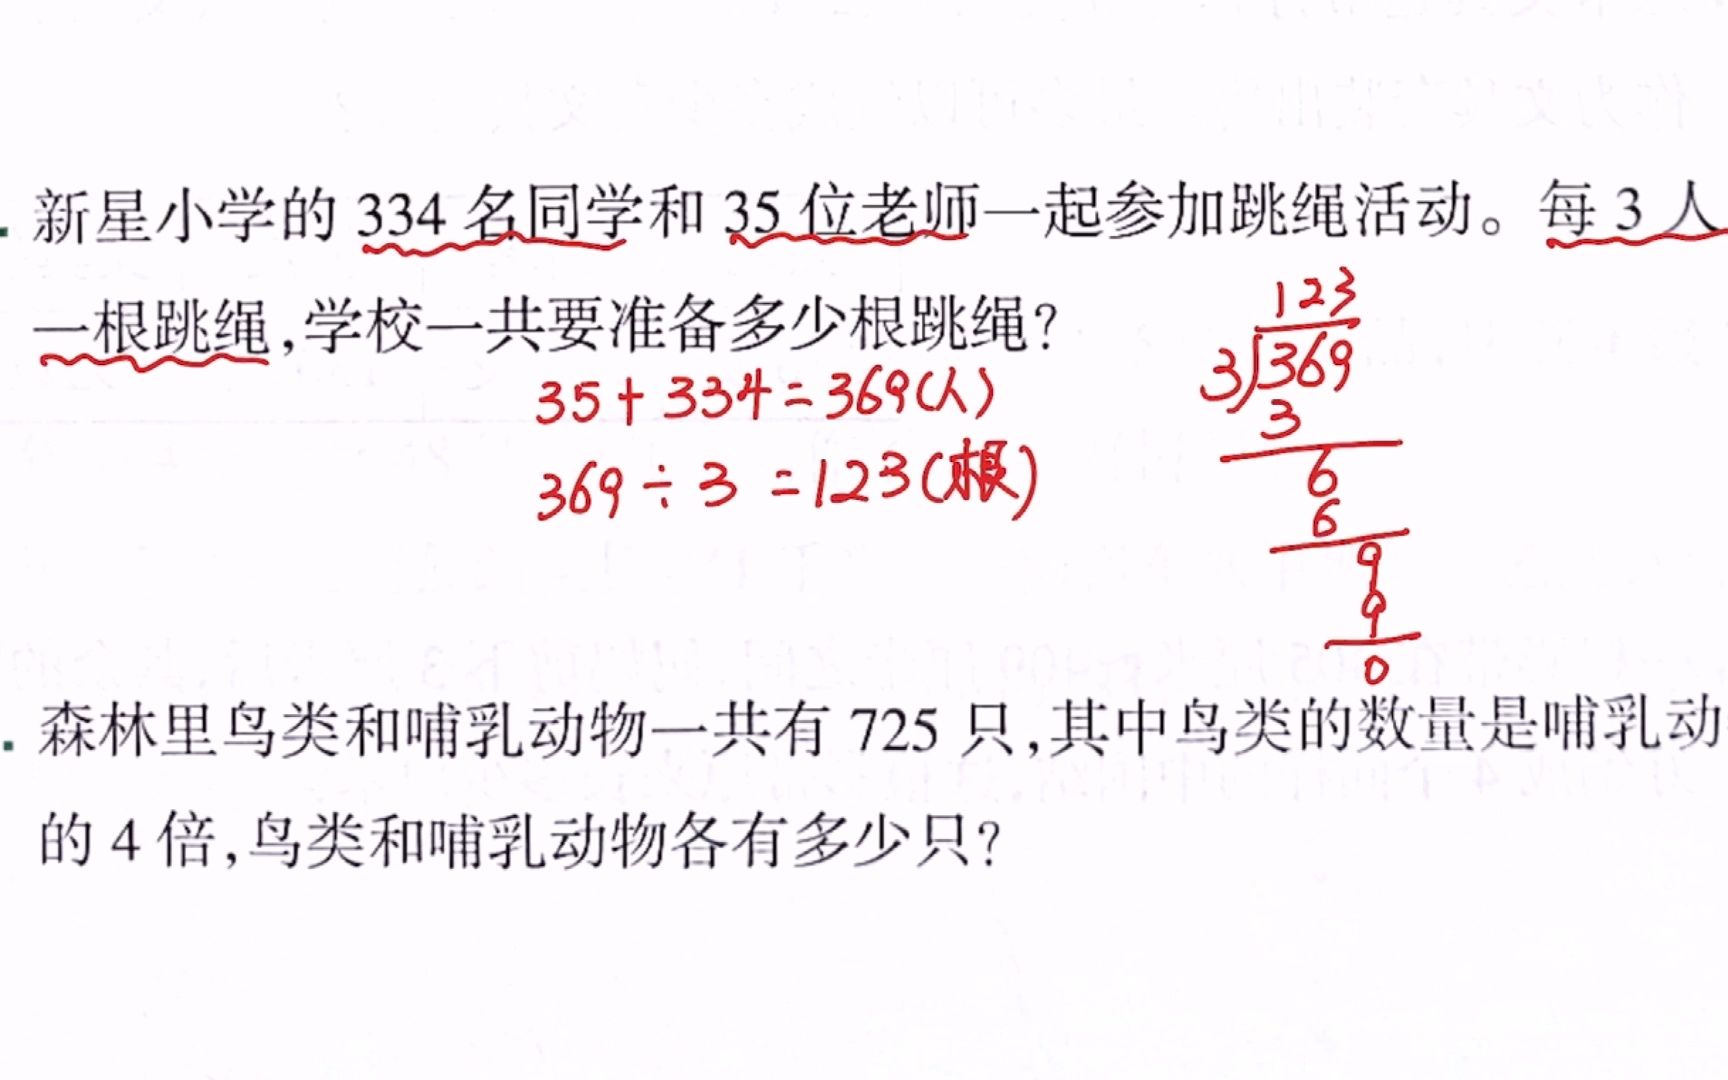 . 新星小学的 334 名同学和 35 位老师一起参加跳绳活动。每 3 人
一根跳绳,学校一共要准备多少根跳绳?
35+334=369(人)
369÷3=123(根)
123
3)369
3
6
6
9
9
0
. 森林里鸟类和哺乳动物一共有 725 只,其中鸟类的数量是哺乳动
的 4 倍,鸟类和哺乳动物各有多少只?